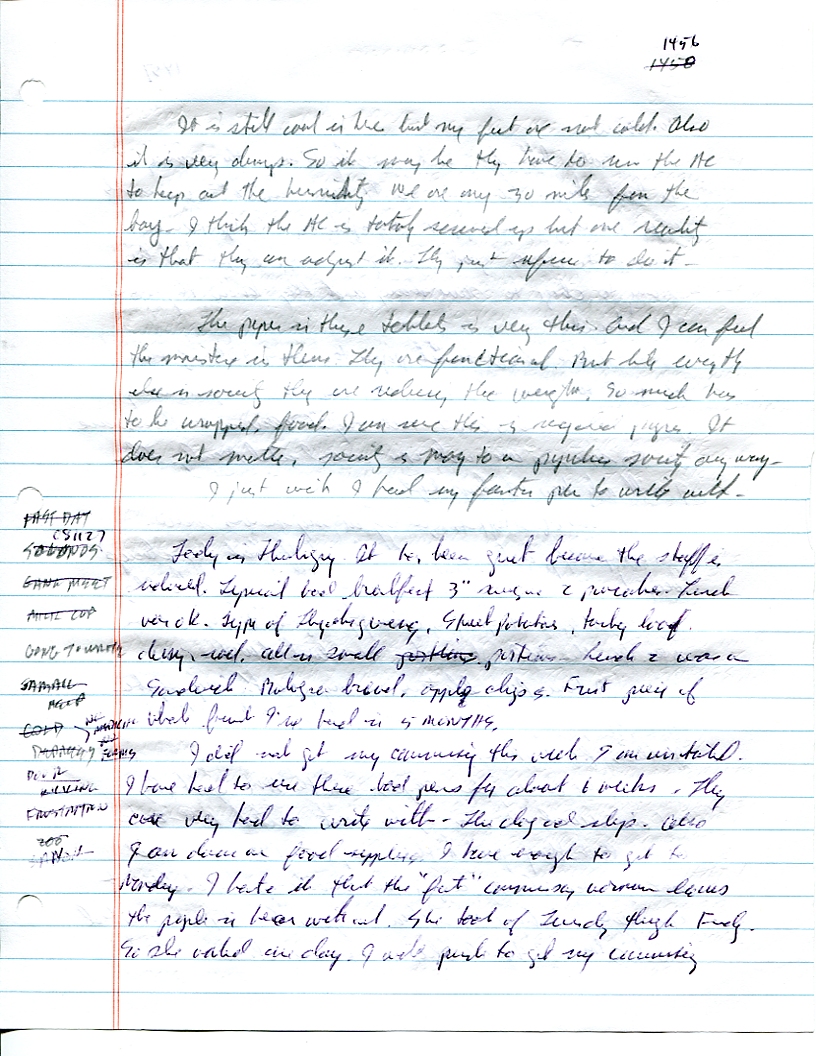 1456
1450
It is still cool in here but my feet are not cold. Also
it is very damp. So it may be they have to run the AC
to keep out the humidity. We are only 30 miles from the
bay. I think the AC is totally screwed up but one reality
is that they can adjust it. They just refuse to do it -
The paper in these tablets is very thin. And I can feel
the moisture in them. They are functional. But like everything
else in society they are reducing the weight. So much has
to be wrapped, food. I can see this is recycled paper. It
does not matter, society is moving to a paperless society anyway -
I just wish I had my fountain pen to write with -
PAST DAT
CS1127
SOLONOS
GANG MEET
GONG TO
Today is Thanksgiving. It has been quiet because the staff is
reduced. Typical bad breakfast 3" 2 pancakes. Lunch
was ok. Type of Thanksgiving, Sweet potatoes, turkey loaf.
all in small portions portions. Lunch 2 was a
Sandwich. Bologna bread, apple chips. First piece of
fruit I've had in 5 MONTHS.
SAMALL
HELP
COLD
I did not get my commissary this week. I am
DO IT
KILLING
FRUSTATION
200
I have had to use these bad pens for about 6 weeks. They
are very hard to write with - The slip. Also
I am down on food supplies. I have enough to get to
Monday. I hate it that the "fat" commissary woman leaves
the people in here without. She took off Tuesday through Friday.
So she worked one day. I will push to get my commissary